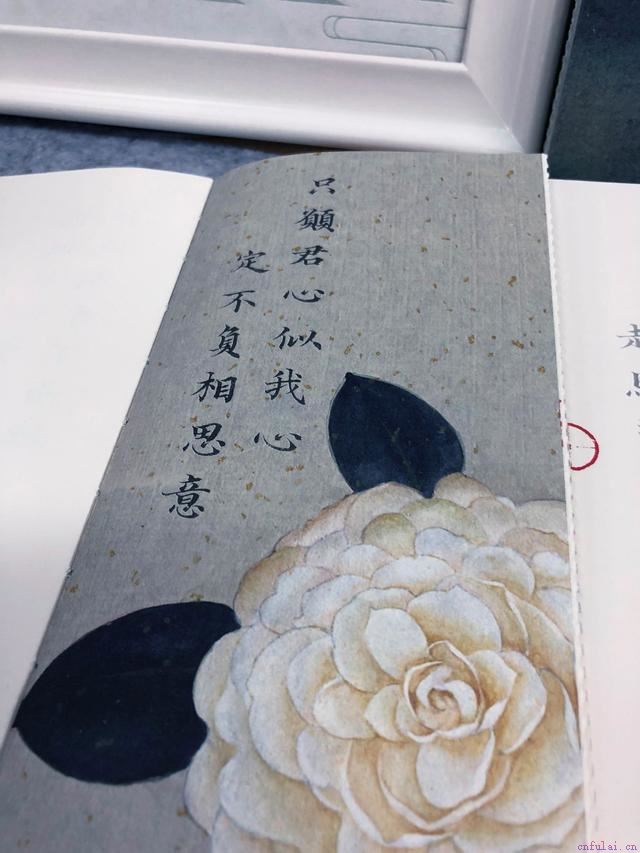 只願君心似我心
定不負相思意
cnfulai.cn